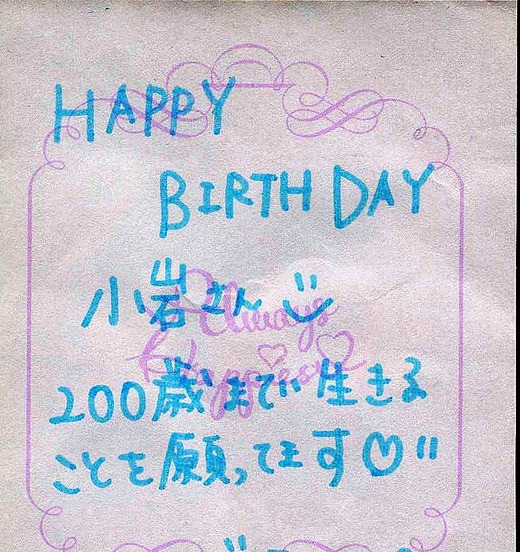 HAPPY
BIRTH DAY
小岩さん
Always
Happiness
200歳まで 生きる
ことを願ってます♡"